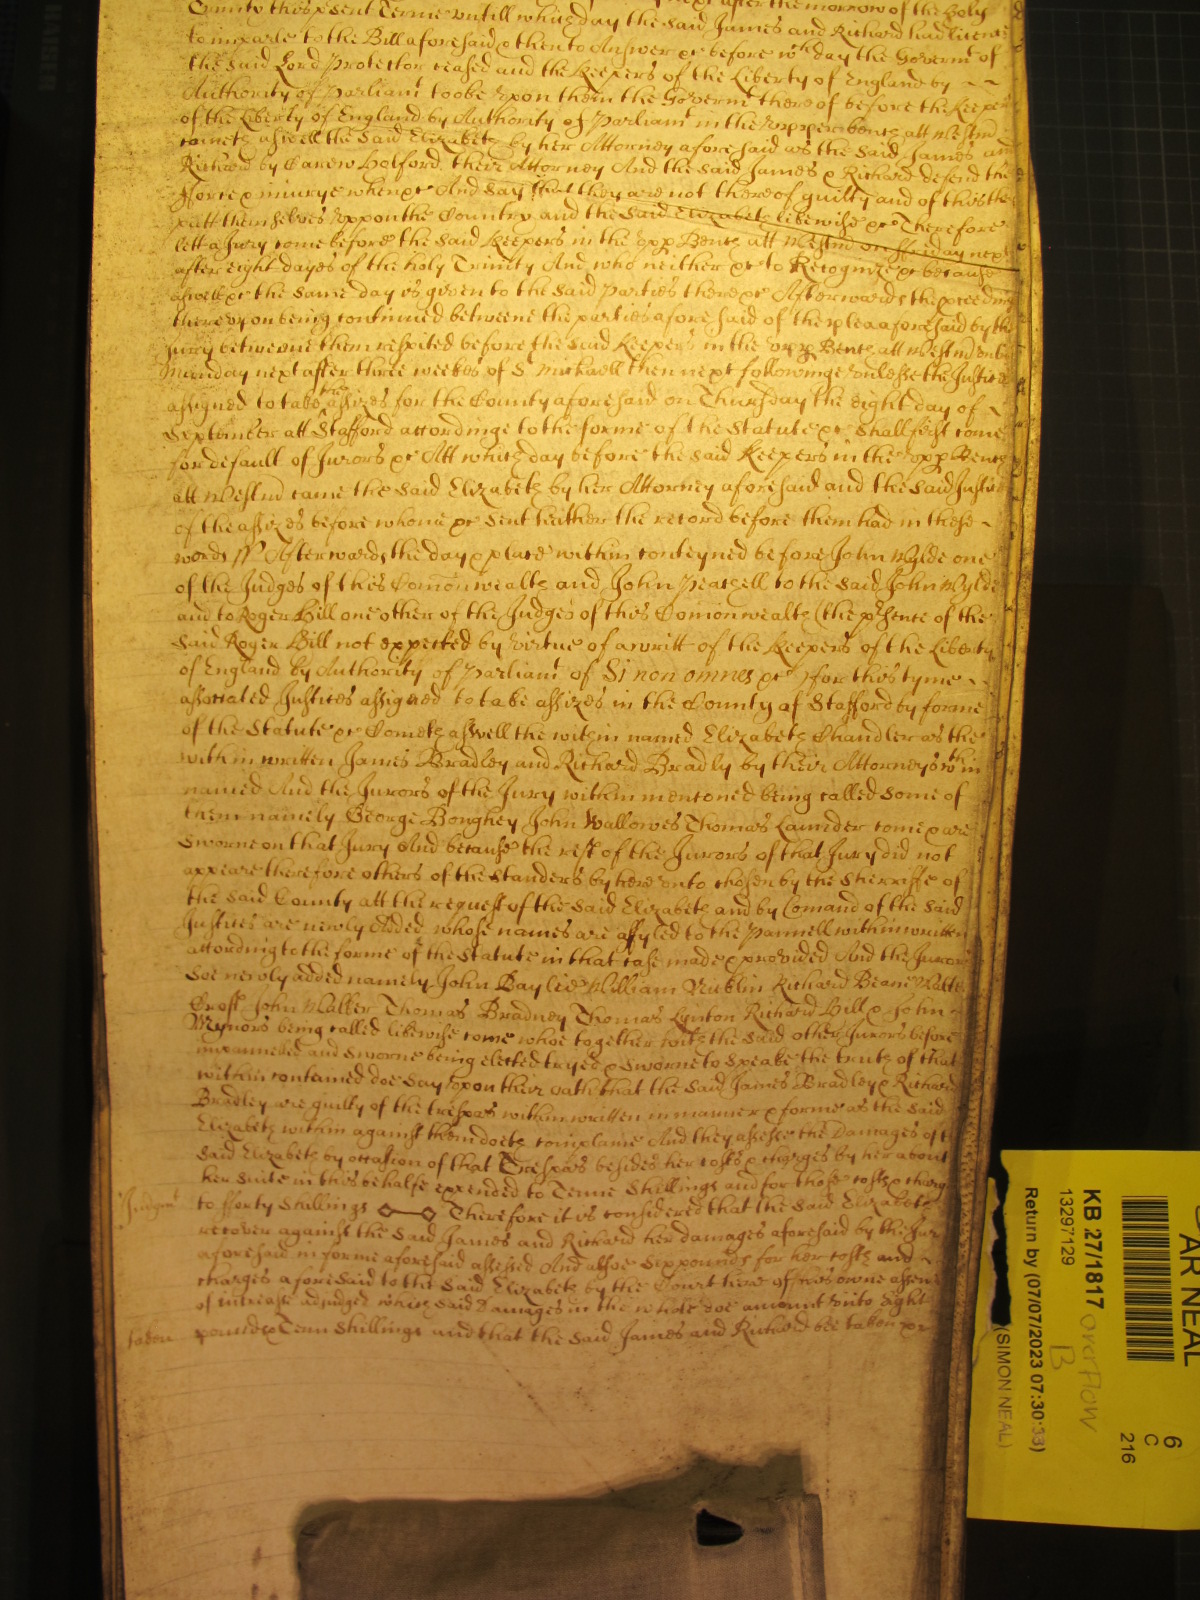 next after the morrow of the Holy
Trinity this p'sent Terme untill which day the said James and Richard had licence
to imparle to the Bill aforesaid & then to Answer &c before wch day the Governmt of
the said Lord Protector ceased and the Keepers of the Liberty of England by
Authority of Parliamt tooke upon them the Governmt thereof before the Keepers
of the Liberty of England by Authority of Parliamt in the upper bench att Westmr
cometh aswell the said Elizabeth by her Attorney aforesaid as the said James and
Richard by Carew Holford their Attorney And the said James & Richard defend the
fforce & iniurye when &c And say that they are not thereof guilty and of this they
putt themselves uppon the Country and the said Elizabeth likewise &c Therefore
lett a Jury come before the said Keepers in the upp Bench att Westmr on ffriday next
after eight dayes of the holy Trinity And who neither &c to Recognize &c because
aswell &c the same day is given to the said parties there &c Afterwards the p'ceedings
thereupon being continued betweene the parties aforesaid of the plea aforesaid by the
Jury betweene them respited before the said Keepers in the upp Bench att Westmr untill
Munday next after three weekes of St Michaell then next followinge unlesse the Justices
assigned to take the assizes for the County aforesaid on Thursday the eight day of
September att Stafford accordinge to the forme of the Statute &c shall first come
for default of Jurors &c Att which day before the said Keepers in the upp Bench
att Westmr came the said Elizabeth by her Attorney aforesaid and the said Justices
of the assizes before whome &c sent hither the record before them had in these
words ss Afterwards the day & place within conteyned before John Wylde one
of the Judges of this Comonwealth and John Peachell to the said John Wylde
and to Roger Hill one other of the Judges of this Comonwealth (the p'sence of the
said Roger Hill not expected by virtue of a writt of the Keepers of the Liberty
of England by Authority of Parliamt of Si non omnes &c) for this tyme
associated Justices assigned to take assizes in the County of Stafford by forme
of the Statute &c Cometh aswell the within named Elizabeth Chandler as the
within written James Bradley and Richard Bradly by their Attorneys wthin
named And the Jurors of the Jury within mentoned being called some of
them namely George Boughey John Wallowes Thomas Launder come & are
sworne on that Jury And because the rest of the Jurors of that Jury did not
appeare therefore others of the standers by hereunto chosen by the Sherriffe of
the said County att the request of the said Elizabeth and by Comand of the said
Justices are newly Added whose names are affyled to the Pannell within written
according to the forme of the Statute in that case made & provided And the Jurors
soe newly added namely John Baylie William Nicklin Richard Beane
Crosse John Walker Thomas Bradney Thomas Lynton Richard Hill & John
Mynors being called likewise come whoe together with the said other Jurors before
impannelled and sworne being elected tryed & sworne to speake the truth of that
within contained doe say upon their oath that the said James Bradley & Richard
Bradley are guilty of the trespas within written in manner & forme as the said
Elizabeth within against them doeth complaine And they assesse the Damages of the
said Elizabeth by occasion of that Trespas besides her costs & charges by her about
her suite in this behalfe expended to Tenne Shillings and for those costs & charges
Judgmt to fforty Shillings Therefore it is considered that the said Elizabeth
recover against the said James and Richard her damages aforesaid by the Jury
aforesaid in forme aforesaid assessed And alsoe six pounds for her costs and
charges aforesaid to the said Elizabeth by the Court here of this owne assent
of increase adjudged which said Damages in the whole doe amount unto Eight
taken pounds & Tenn Shillings and that the said James and Richard bee taken &c
AR NEAL
6
C
216
KB 27/1817 overflow
B
13297129
Return by (07/07/2023 07:30:33)
(SIMON NEAL)